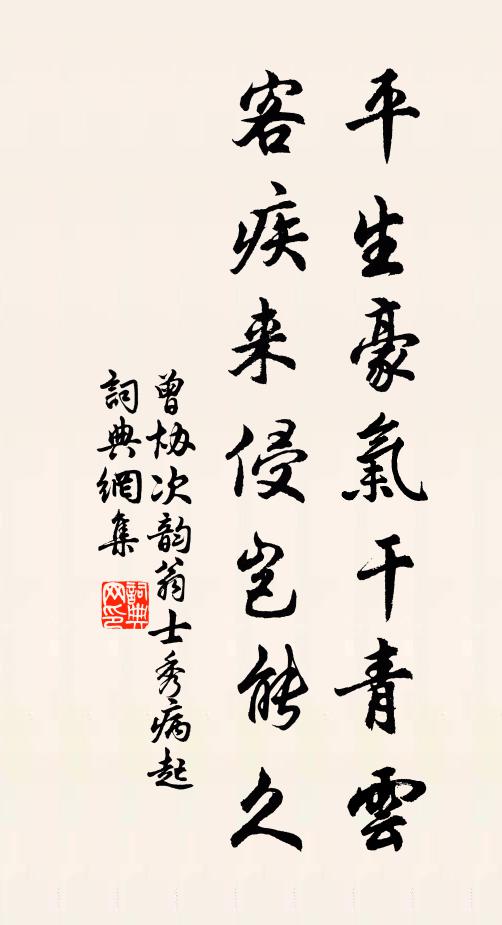 平生豪氣干青雲
客疾来侵岂能久
曾協次韵翁士秀病起
詞典網集
詞典网印